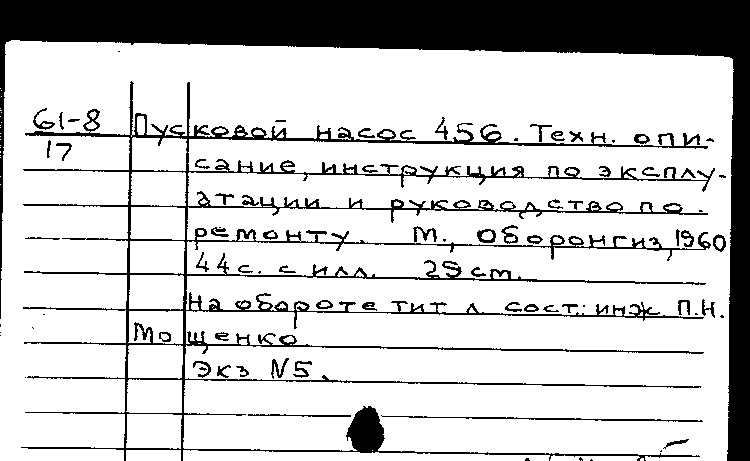 61-8
17
Пусковой насос 456. Техн. опи-
сание, инструкция по эксплу-
атации и руководство по
ремонту. М., Оборонгиз, 1960
44 с. с илл. 29 cm.
На обороте тит. л. сост.: инж. П.Н.
Мощенко
Экз N5.